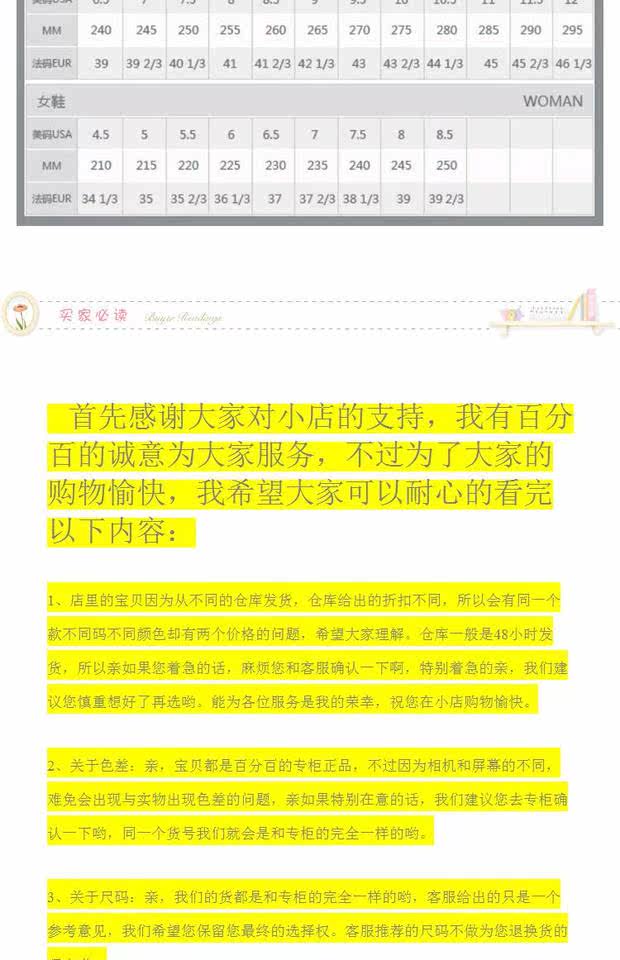 240 245 250 255 260 265 270 275 280 285 290 295
MM
法码EUR 39 39 2/3 40 1/3 41 41 2/3 42 1/3 43 43 2/3 44 1/3 45 45 2/3 46 1/3
女鞋 WOMAN
美码USA 4.5 5 5.5 6 6.5 7 7.5 8 8.5
MM 210 215 220 225 230 235 240 245 250
法码EUR 34 1/3 35 35 2/3 36 1/3 37 37 2/3 38 1/3 39 39 2/3
买家必读 Buyer Readings
首先感谢大家对小店的支持，我有百分
百的诚意为大家服务，不过为了大家的
购物愉快，我希望大家可以耐心的看完
以下内容：
1、店里的宝贝因为从不同的仓库发货，仓库给出的折扣不同，所以会有同一个
款不同码不同颜色却有两个价格的问题，希望大家理解。仓库一般是48小时发
货，所以亲如果您着急的话，麻烦您和客服确认一下啊，特别着急的亲，我们建
议您慎重想好了再选哟。能为各位服务是我的荣幸，祝您在小店购物愉快。
2、关于色差：亲，宝贝都是百分百的专柜正品，不过因为相机和屏幕的不同，
难免会出现与实物出现色差的问题，亲如果特别在意的话，我们建议您去专柜确
认一下哟，同一个货号我们就会是和专柜的完全一样的哟。
3、关于尺码：亲，我们的货都是和专柜的完全一样的哟，客服给出的只是一个
参考意见，我们希望您保留您最终的选择权。客服推荐的尺码不做为您退换货的